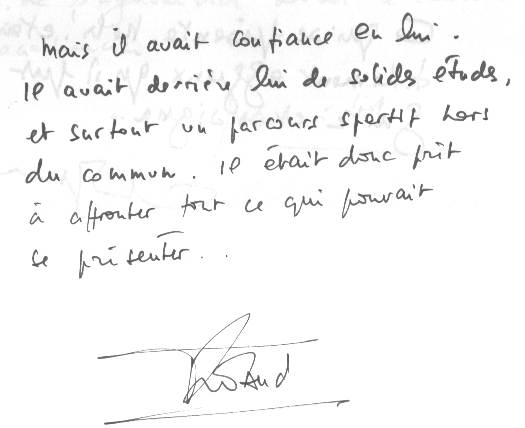 mais il avait confiance en lui.
Il avait derrière lui de solides études,
et surtout un parcours sportif hors
du commun. Il était donc prêt
à affronter tout ce qui pouvait
se présenter..